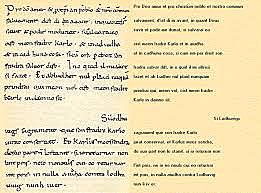 p dõ amur & p xpian poblo & nro cõmun
saluament. dist di in auant. inquantds
sauir & podir me dunat. sisaluaraieo
cist meon fradre karlo. & in aiudha
& in cad huna cosa. sicũ om p dreit son
fradra saluar dist. In o quid il mi altre
si faz&. Et abludher nul plaid nũquã
prindrai qui meon uol cist meon fradre
karle in damno sit.
Silodhu
uigs sagrament que son fradre karlo
iurat conseruat. Et karlus meossendra
de suo part
returnar non
lint pois. ne io ne neuls cui eo returnar
int pois. in nulla aiudha contra lodhu
uuig nun li iuer.
Pro Deo amur et pro christian poblo et nostro commun
salvament, d'ist di in avant, in quant Deus
savir et podir me dunat, si salvarai eo
cist meon fradre Karlo et in aiudha
et in cadhuna cosa, si cum om per dreit son
fradra salvar dift, in o quid il mi altre
fazet et ab Ludher nul plaid nunquam
prindrai qui, meon vol, cist meon fradre
Karle in damno sit.
Si Lodhuvigs
sagrament que son fradre Karlo
jurat conservat, et Karlus meos sendra,
de suo part
l'int pois, ne io ne neuls cui eo returnar
int pois, in nulla aiudha contra Lodhuvig
nun li iv er.